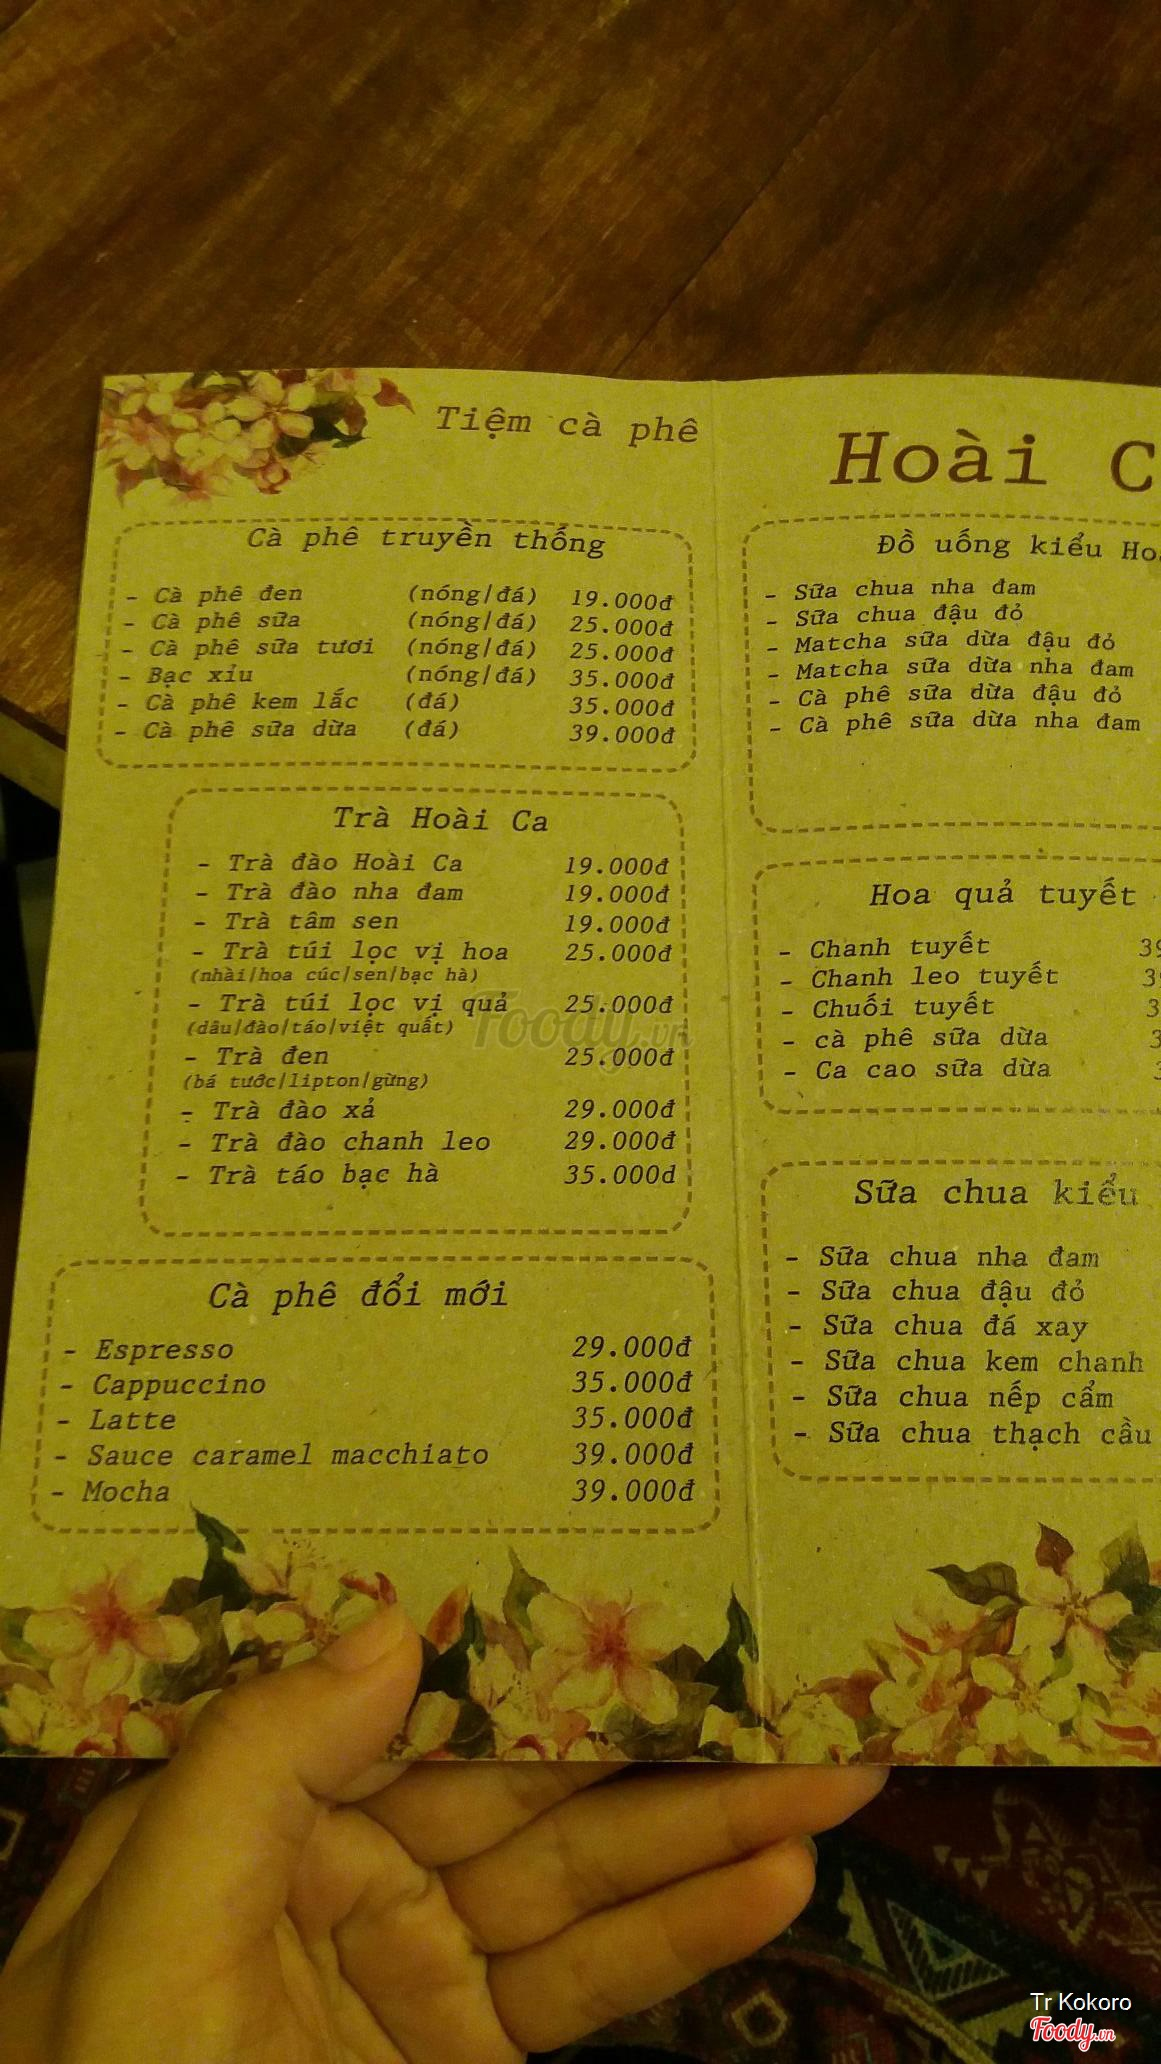 Tiệm cà phê
Cà phê truyền thống
- Cà phê đen (nóng/đá) 19.000đ
- Cà phê sữa (nóng/đá) 25.000đ
- Cà phê sữa tươi (nóng/đá) 25.000đ
- Bạc xỉu (nóng/đá) 35.000đ
- Cà phê kem lắc (đá) 35.000đ
- Cà phê sữa dừa (đá) 39.000đ
Trà Hoài Ca
- Trà đào Hoài Ca 19.000đ
- Trà đào nha đam 19.000đ
- Trà tâm sen 19.000đ
- Trà túi lọc vị hoa 25.000đ
(nhài/hoa cúc/sen/bạc hà)
- Trà túi lọc vị quả 25.000đ
(dâu/đào/táo/việt quất)
- Trà đen 25.000đ
(bá tước/lipton/gừng)
- Trà đào xả 29.000đ
- Trà đào chanh leo 29.000đ
- Trà táo bạc hà 35.000d
Cà phê đổi mới
- Espresso 29.000đ
- Cappuccino 35.000đ
- Latte 35.000đ
- Sauce caramel macchiato 39.000đ
- Mocha 39.000đ
Hoài C
Đồ uống kiểu Ho
- Sữa chua nha đam
- Sữa chua đậu đỏ
- Matcha sữa dừa đậu đỏ
- Matcha sữa dừa nha đam
- Cà phê sữa dừa đậu đỏ
- Cà phê sữa dừa nha đam
Hoa quả tuyết
- Chanh tuyết 39
- Chanh leo tuyết 3
- Chuối tuyết 3
- cà phê sữa dừa 3
- Ca cao sữa dừa
Sữa chua kiểu
- Sữa chua nha đam
- Sữa chua đậu đỏ
- Sữa chua đá xay
- Sữa chua kem chanh
- Sữa chua nếp cẩm
- Sữa chua thạch cầu
Foody.vn
Tr Kokoro
Foody.vn